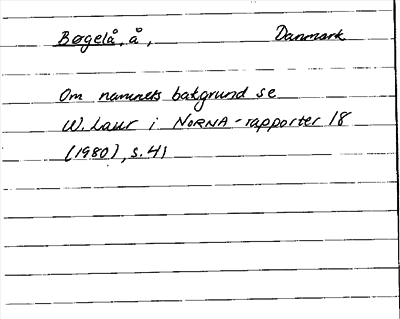 Bøgelå, å, Danmark
Om namnets bakgrund se
W. Laur i NORNA-rapporter 18
(1980), s. 41